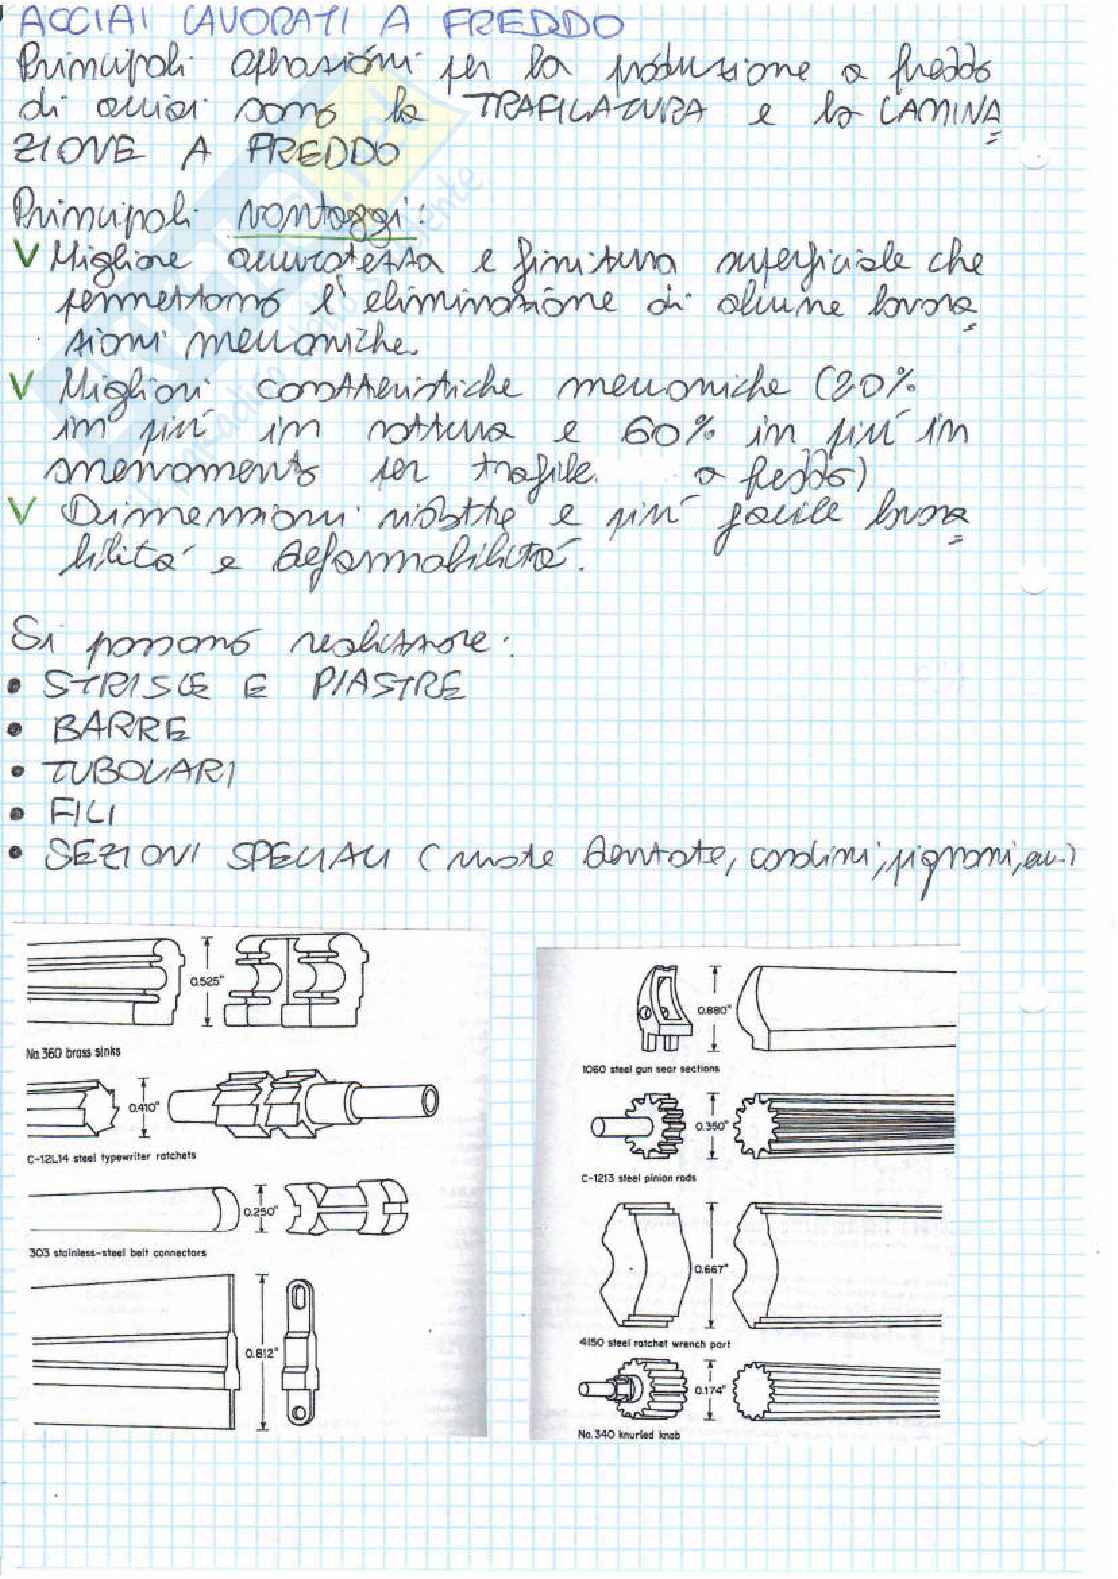 ACCIAI LAVORATI A FREDDO
Principali operazioni per la produzione a freddo
di acciai sono la TRAFILATURA e la LAMINA
ZIONE A FREDDO
Principali vantaggi:
V Migliore accuratezza e finitura superficiale che
permettono l'eliminazione di alcune lavora
zioni meccaniche.
V Migliori caratteristiche meccaniche (20%
in più in rottura e 60% in più in
snervamento per trafile. a freddo)
V Dimensioni ridotte e più facile lavora
bilità e deformabilità.
Si possono realizzare:
• STRISCE E PIASTRE
• BARRE
• TUBOLARI
• FILI
• SEZIONI SPECIALI (ruote dentate, cardini, pignoni, ecc.)
0.525"
No.360 brass sinks
0.410"
C-12L14 steel typewriter ratchets
0.250"
303 stainless-steel belt connectors
0.812"
0.880"
1060 steel gun sear sections
0.350"
C-1213 steel pinion rods
0.667"
4150 steel ratchet wrench part
0.174"
No.340 knurled knob